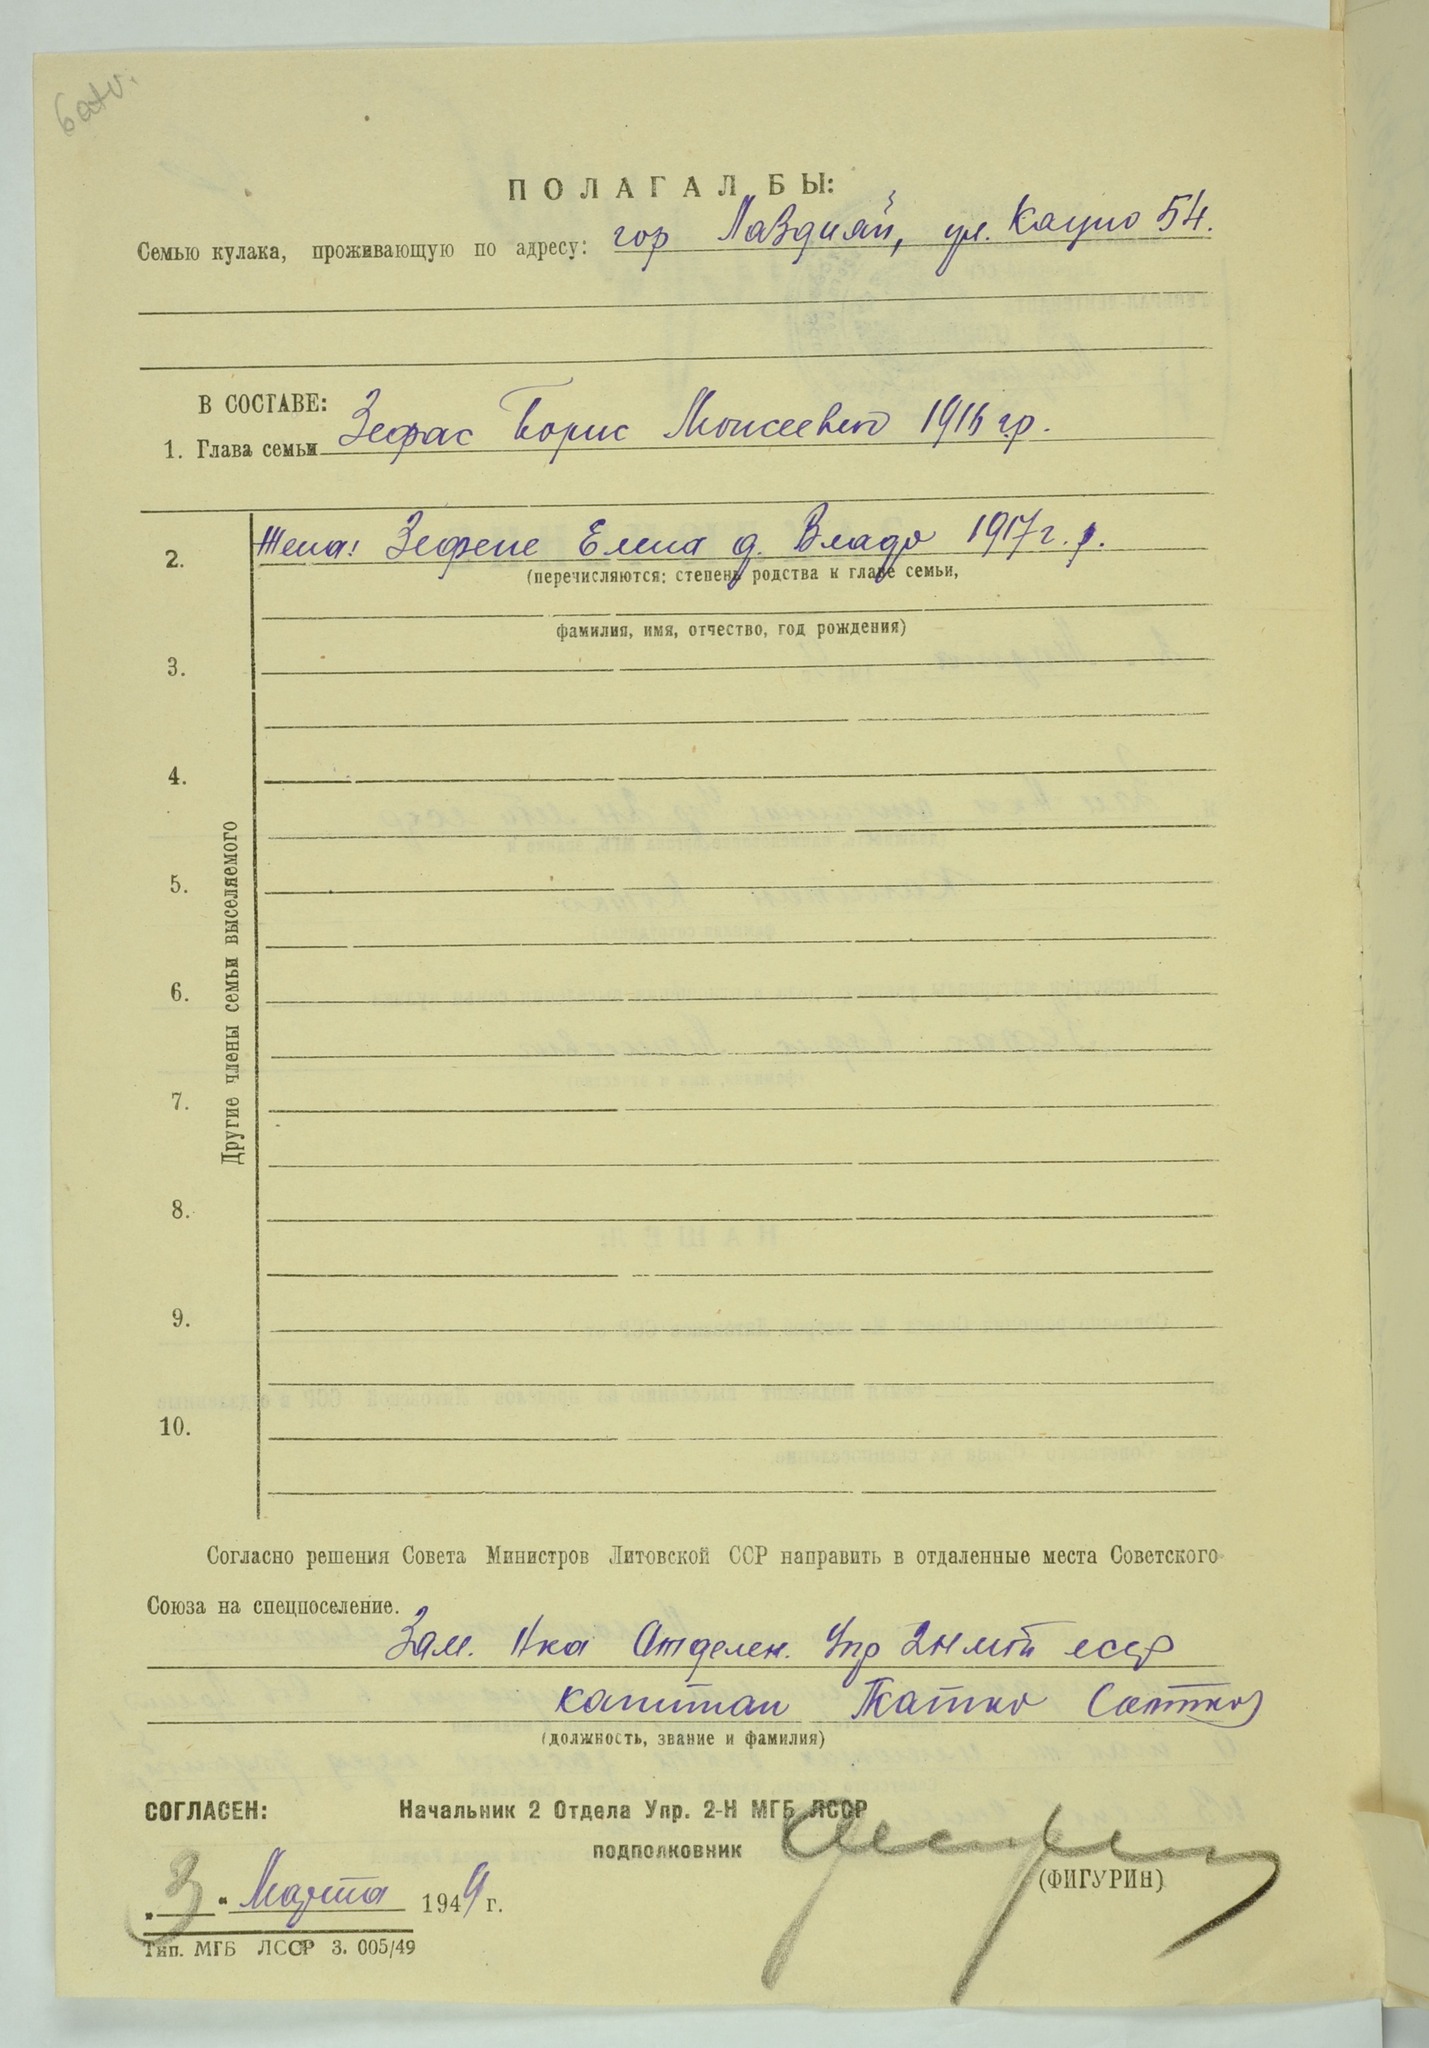 батv.
ПОЛАГАЛ БЫ:
Семью кулака, проживающую по адресу: гор Лаздияй, ул. Кауно 54.
В СОСТАВЕ:
1. Глава семьи Зефас Борис Моисеевич 1916 гр.
2. Жена: Зефене Елена д. Владо 1917 г. р.
(перечисляются: степень родства к главе семьи,
фамилия, имя, отчество, год рождения)
3.
4.
5.
6.
7.
8.
9.
10.
Другие члены семьи выселяемого
Согласно решения Совета Министров Литовской ССР направить в отдаленные места Советского
Союза на спецпоселение.
Зам. Нка Отделен. Упр 2Н МГБ ЛССР
капитан
(должность, звание и фамилия)
СОГЛАСЕН: Начальник 2 Отдела Упр. 2-Н МГБ ЛССР
подполковник
(ФИГУРИН)
„3“ Марта 1949 г.
Тип. МГБ ЛССР З. 005/49